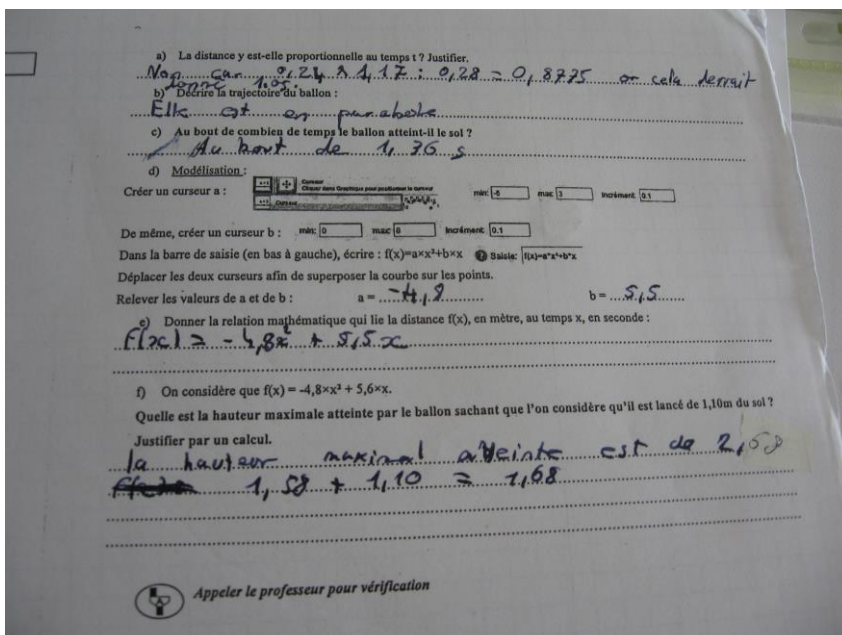 a) La distance y est-elle proportionnelle au temps t ? Justifier.
Non car 0,24 × 1,17 : 0,28 = 0,8775 or cela devrait
donne 1.05.
b) Décrire la trajectoire du ballon :
Elle est en parabole
c) Au bout de combien de temps le ballon atteint-il le sol ?
Au bout de 1,36 s
d) Modélisation :
Créer un curseur a :
Curseur
Cliquer dans Graphique pour positionner le curseur
Curseur
min: -6 max: 3 Incrément: 0.1
De même, créer un curseur b : min: 0 max: 6 Incrément: 0.1
Dans la barre de saisie (en bas à gauche), écrire : f(x)=a×x²+b×x Saisie: f(x)=a*x²+b*x
Déplacer les deux curseurs afin de superposer la courbe sur les points.
Relever les valeurs de a et de b : a = -4,8 b = 5,5
e) Donner la relation mathématique qui lie la distance f(x), en mètre, au temps x, en seconde :
F(x) = - 4,8x² + 5,5 x
f) On considère que f(x) = -4,8×x² + 5,6×x.
Quelle est la hauteur maximale atteinte par le ballon sachant que l'on considère qu'il est lancé de 1,10m du sol ?
Justifier par un calcul.
la hauteur maximal atteinte est de 2,68
1,58 + 1,10 = 1,68
Appeler le professeur pour vérification